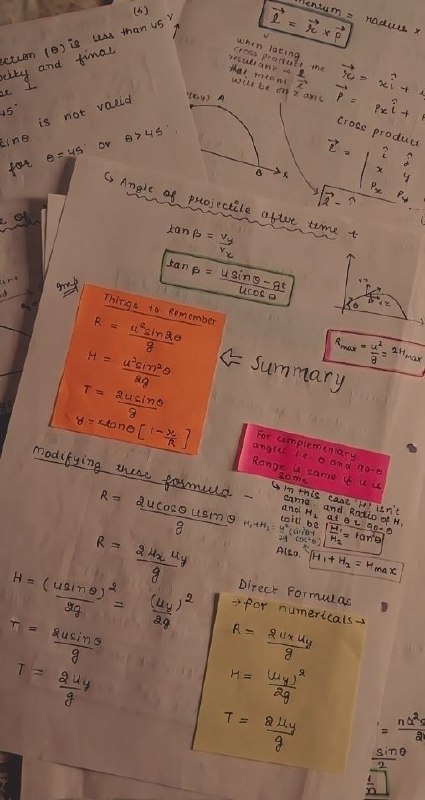 (4)
ection (θ) is less than 45°
ocity and final
45°
sinθ is not valid
for θ = 45° or θ > 45°
A
B
l = r × p
when taking
cross product the
that means
will be on z axis
Cross product
x y
↳ Angle of projectile after time t
tan β = vy/vx
tan β = usinθ - gt / ucosθ
Things to Remember
R = u²sin2θ / g
H = u²sin²θ / 2g
T = 2usinθ / g
y = xtanθ [1 - x/R]
⇐ Summary
Rmax = u²/g = 2Hmax
For complementary
angles i.e. θ and 90-θ
Range is same if u is
same
↳ In this case 'H' isn't
same. and Ratio of H₁
and H₂ at θ & 90-θ
will be H₁/H₂ = tan²θ
Also, H₁ + H₂ = Hmax
Modifying these formula -
R = 2ucosθ usinθ / g
R = 2ux uy / g
H = (usinθ)² / 2g = (uy)² / 2g
T = 2usinθ / g
T = 2uy / g
Direct Formulas
→ for numericals →
R = 2ux uy / g
H = (uy)² / 2g
T = 2uy / g
sinθ